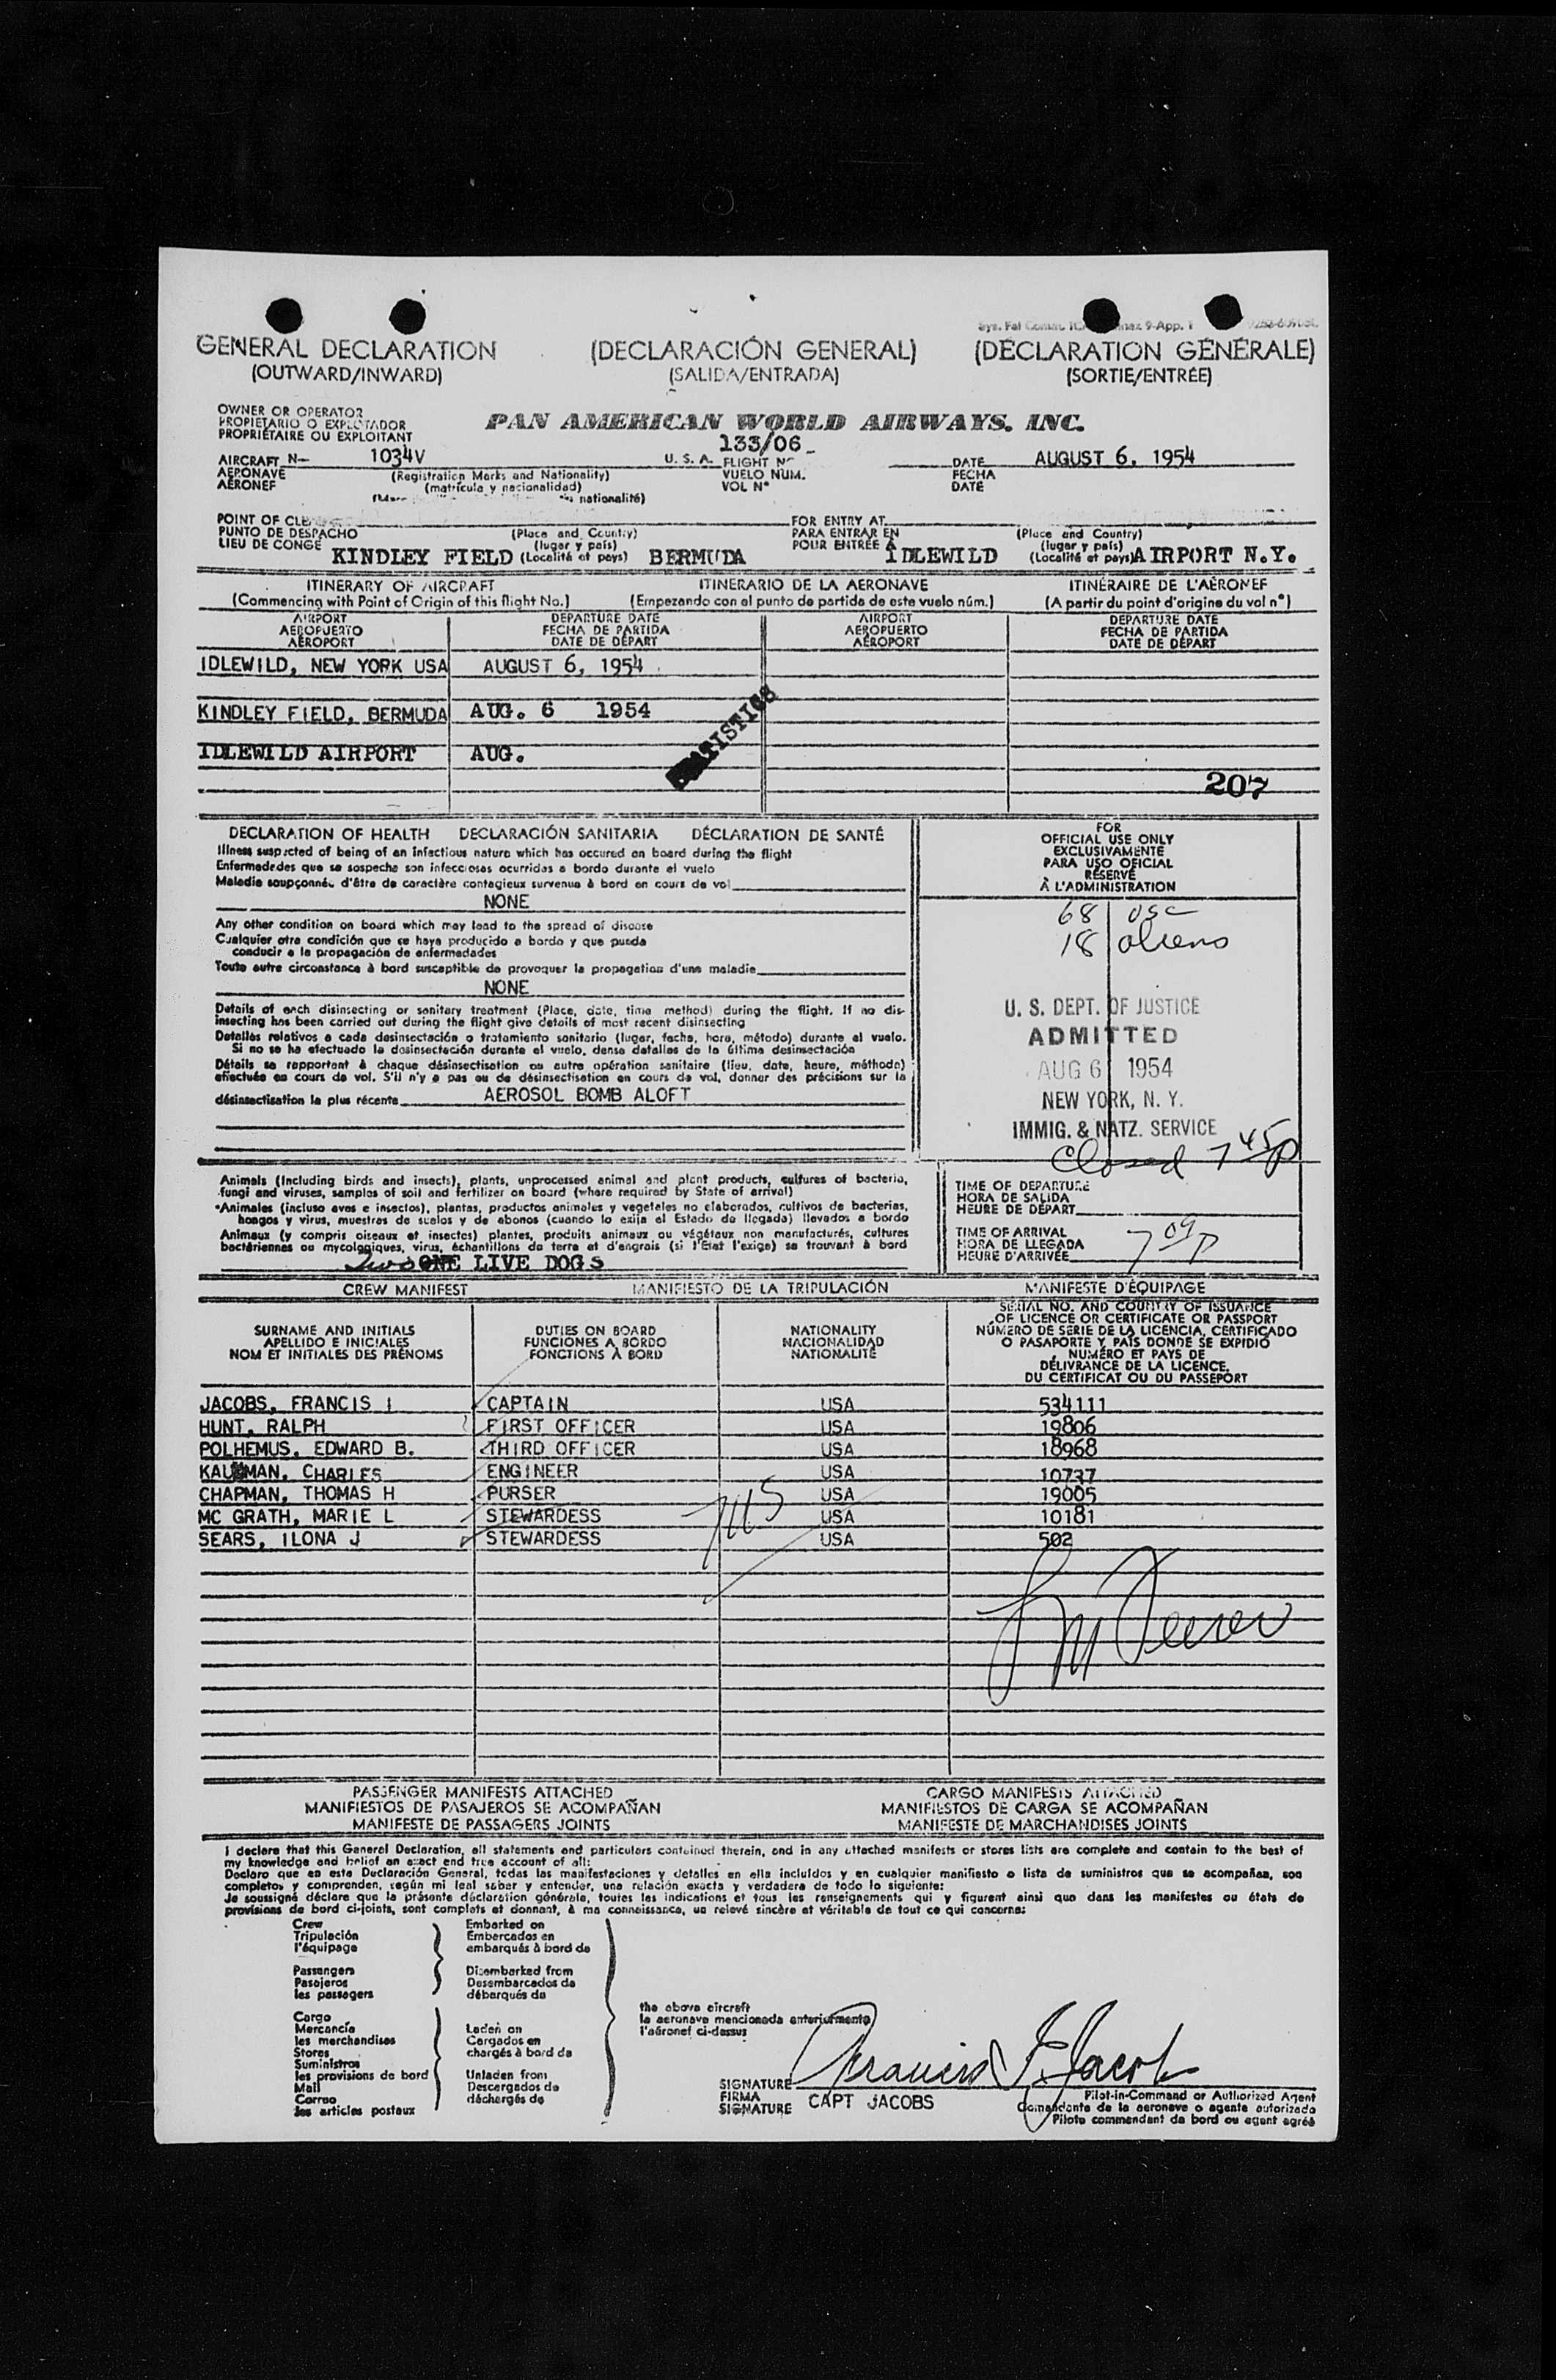 GENERAL DECLARATION (DECLARACIÓN GENERAL) (DÉCLARATION GÉNÉRALE)
(OUTWARD/INWARD) (SALIDA/ENTRADA) (SORTIE/ENTRÉE)
OWNER OR OPERATOR
PROPIETARIO O EXPLOTADOR
PROPRIÉTAIRE OU EXPLOITANT
PAN AMERICAN WORLD AIRWAYS, INC.
133/06
AIRCRAFT N— 1034V U. S. A. FLIGHT Nº DATE AUGUST 6, 1954
AERONAVE (Registration Marks and Nationality) VUELO NUM. FECHA
AÉRONEF (matrícula y nacionalidad) VOL Nº DATE
nationalité)
POINT OF FOR ENTRY AT
PUNTO DE DESPACHO (Place and Country) PARA ENTRAR EN (Place and Country)
LIEU DE CONGÉ (lugar y país) POUR ENTRÉE À (lugar y país)
KINDLEY FIELD (Localité et pays) BERMUDA IDLEWILD (Localité et pays) AIRPORT N.Y.
ITINERARY OF AIRCRAFT ITINERARIO DE LA AERONAVE ITINÉRAIRE DE L'AÉRONEF
(Commencing with Point of Origin of this flight No.) (Empezando con el punto de partida de este vuelo núm.) (A partir du point d'origine du vol nº)
AIRPORT DEPARTURE DATE AIRPORT DEPARTURE DATE
AEROPUERTO FECHA DE PARTIDA AEROPUERTO FECHA DE PARTIDA
AÉROPORT DATE DE DÉPART AÉROPORT DATE DE DÉPART
IDLEWILD, NEW YORK USA AUGUST 6, 1954
KINDLEY FIELD, BERMUDA AUG. 6 1954
IDLEWILD AIRPORT AUG.
207
DECLARATION OF HEALTH DECLARACIÓN SANITARIA DÉCLARATION DE SANTÉ
Illness suspected of being of an infectious nature which has occured on board during the flight
Enfermedades que se sospecha son infecciosas ocurridas a bordo durante el vuelo
Maladie soupçonnée d'être de caractère contagieux survenue à bord en cours de vol
NONE
Any other condition on board which may lead to the spread of disease
Cualquier otra condición que se haya producido a bordo y que pueda
conducir a la propagación de enfermedades
Toute autre circonstance à bord susceptible de provoquer la propagation d'une maladie
NONE
Details of each disinsecting or sanitary treatment (Place, date, time method) during the flight. If no dis-
insecting has been carried out during the flight give details of most recent disinsecting
Detalles relativos a cada desinsectación o tratamiento sanitario (lugar, fecha, hora, método) durante el vuelo.
Si no se ha efectuado la desinsectación durante el vuelo, dense detalles de la última desinsectación
Détails se rapportant à chaque désinsectisation ou autre opération sanitaire (lieu, date, heure, méthode)
effectuée en cours de vol. S'il n'y a pas eu de désinsectisation en cours de vol, donner des précisions sur la
désinsectisation la plus récente AEROSOL BOMB ALOFT
FOR
OFFICIAL USE ONLY
EXCLUSIVAMENTE
PARA USO OFICIAL
RÉSERVÉ
À L'ADMINISTRATION
68 USC
18 aliens
U. S. DEPT. OF JUSTICE
ADMITTED
AUG 6 1954
NEW YORK, N. Y.
IMMIG. & NATZ. SERVICE
Closed 7 45 p
Animals (Including birds and insects), plants, unprocessed animal and plant products, cultures of bacteria,
fungi and viruses, samples of soil and fertilizer on board (where required by State of arrival)
Animales (incluso aves e insectos), plantas, productos animales y vegetales no elaborados, cultivos de bacterias,
hongos y virus, muestras de suelos y de abonos (cuando lo exija el Estado de llegada) llevados a bordo
Animaux (y compris oiseaux et insectes) plantes, produits animaux ou végétaux non manufacturés, cultures
bactériennes ou mycologiques, virus, échantillons de terre et d'engrais (si l'État l'exige) se trouvant à bord
Two ONE LIVE DOGS
TIME OF DEPARTURE
HORA DE SALIDA
HEURE DE DÉPART
TIME OF ARRIVAL
HORA DE LLEGADA
HEURE D'ARRIVÉE 7 09 P
CREW MANIFEST MANIFIESTO DE LA TRIPULACIÓN MANIFESTE D'ÉQUIPAGE
SURNAME AND INITIALS
APELLIDO E INICIALES
NOM ET INITIALES DES PRÉNOMS
DUTIES ON BOARD
FUNCIONES A BORDO
FONCTIONS À BORD
NATIONALITY
NACIONALIDAD
NATIONALITÉ
SERIAL NO. AND COUNTRY OF ISSUANCE
OF LICENCE OR CERTIFICATE OR PASSPORT
NÚMERO DE SERIE DE LA LICENCIA, CERTIFICADO
O PASAPORTE Y PAÍS DONDE SE EXPIDIÓ
NUMÉRO ET PAYS DE
DÉLIVRANCE DE LA LICENCE,
DU CERTIFICAT OU DU PASSEPORT
JACOBS, FRANCIS I CAPTAIN USA 534111
HUNT, RALPH FIRST OFFICER USA 19806
POLHEMUS, EDWARD B. THIRD OFFICER USA 18968
CHARLES ENGINEER USA 10737
CHAPMAN, THOMAS H PURSER USA 19005
MC GRATH, MARIE L STEWARDESS USA 10181
SEARS, ILONA J STEWARDESS USA 502
PASSENGER MANIFESTS ATTACHED CARGO MANIFESTS ATTACHED
MANIFIESTOS DE PASAJEROS SE ACOMPAÑAN MANIFIESTOS DE CARGA SE ACOMPAÑAN
MANIFESTE DE PASSAGERS JOINTS MANIFESTE DE MARCHANDISES JOINTS
I declare that this General Declaration, all statements and particulars contained therein, and in any attached manifests or stores lists are complete and contain to the best of
my knowledge and belief an exact end true account of all:
Declaro que en esta Declaración General, todas las manifestaciones y detalles en ella incluidos y en cualquier manifiesto o lista de suministros que se acompañan, son
completos y comprenden, según mi leal saber y entender, una relación exacta y verdadera de todo lo siguiente:
Je soussigné déclare que la présente déclaration générale, toutes les indications et tous les renseignements qui y figurent ainsi que dans les manifestes ou états de
provisions de bord ci-joints, sont complets et donnent, à ma connaissance, un relevé sincère et véritable de tout ce qui concerne:
Crew Embarked on
Tripulación Embarcados en
l'équipage embarqués à bord de
Passengers Disembarked from
Pasajeros Desembarcados de
les passagers débarqués de
the above aircraft
la aeronave mencionada anteriormente
l'aéronef ci-dessus
Cargo
Mercancía Laden on
les merchandises Cargados en
Stores chargés à bord de
Suministros
les provisions de bord Unladen from
Mail Descargados de
Correo déchargés de
les articles postaux
SIGNATURE Francis I. Jacobs
FIRMA CAPT JACOBS
SIGNATURE
Pilot-in-Command or Authorized Agent
Comandante de la aeronave o agente autorizado
Pilote commandant de bord ou agent agréé